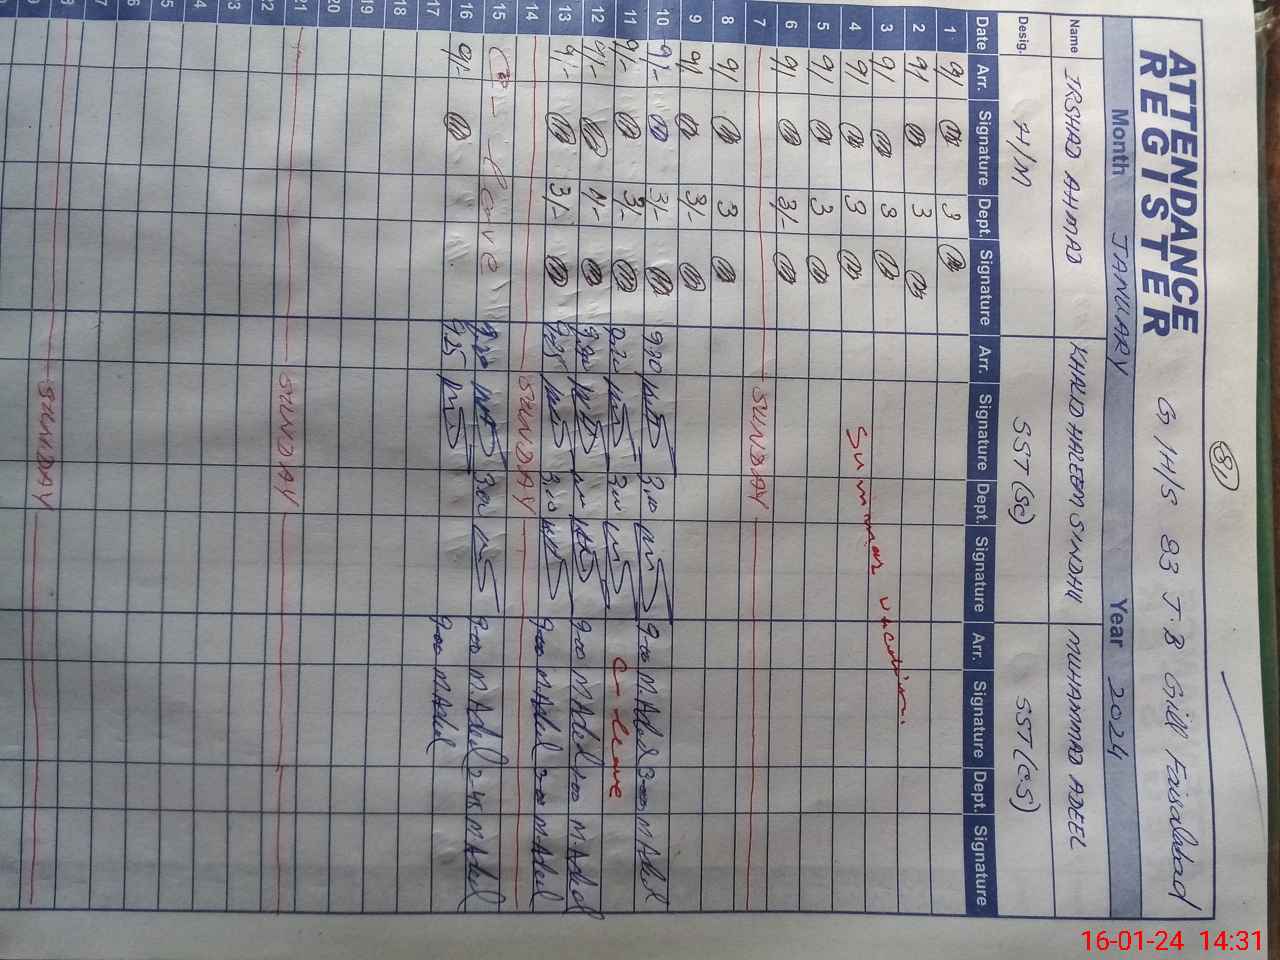 81
ATTENDANCE REGISTER G H/S 83 J.B Gill Faisalabad
Month JANUARY Year 2024
Name IRSHAD AHMAD KHALID HALEEM SINDHU MUHAMMAD ADEEL
Desig. H/M SST (Sc) SST (CS)
Date Arr. Signature Dept. Signature Arr. Signature Dept. Signature Arr. Signature Dept. Signature
1 9/ 3
2 9/ 3
3 9/ 3
4 9/ 3
5 9/ 3
6 9/ 3/-
Summar vacations
7 SUNDAY
8 9/ 3
9 9/ 3/-
10 9/- 3/- 9.20 3.00 9-00 M.Adeel 3-00 M.Adeel
11 9/- 3/- 3.00 C-leave
12 9/- 9-00 M.Adeel 1-00 M.Adeel
13 9/- 3/- 9.25 3.00 9-00 M.Adeel 3-00 M.Adeel
14 SUNDAY
15 leave 3.00 9-00 M.Adeel M.Adeel
16 9/- 9.25 9-00 M.Adeel
17
18
19
20
21 SUNDAY
22
23
24
25
26
27
28 SUNDAY
29
16-01-24 14:31